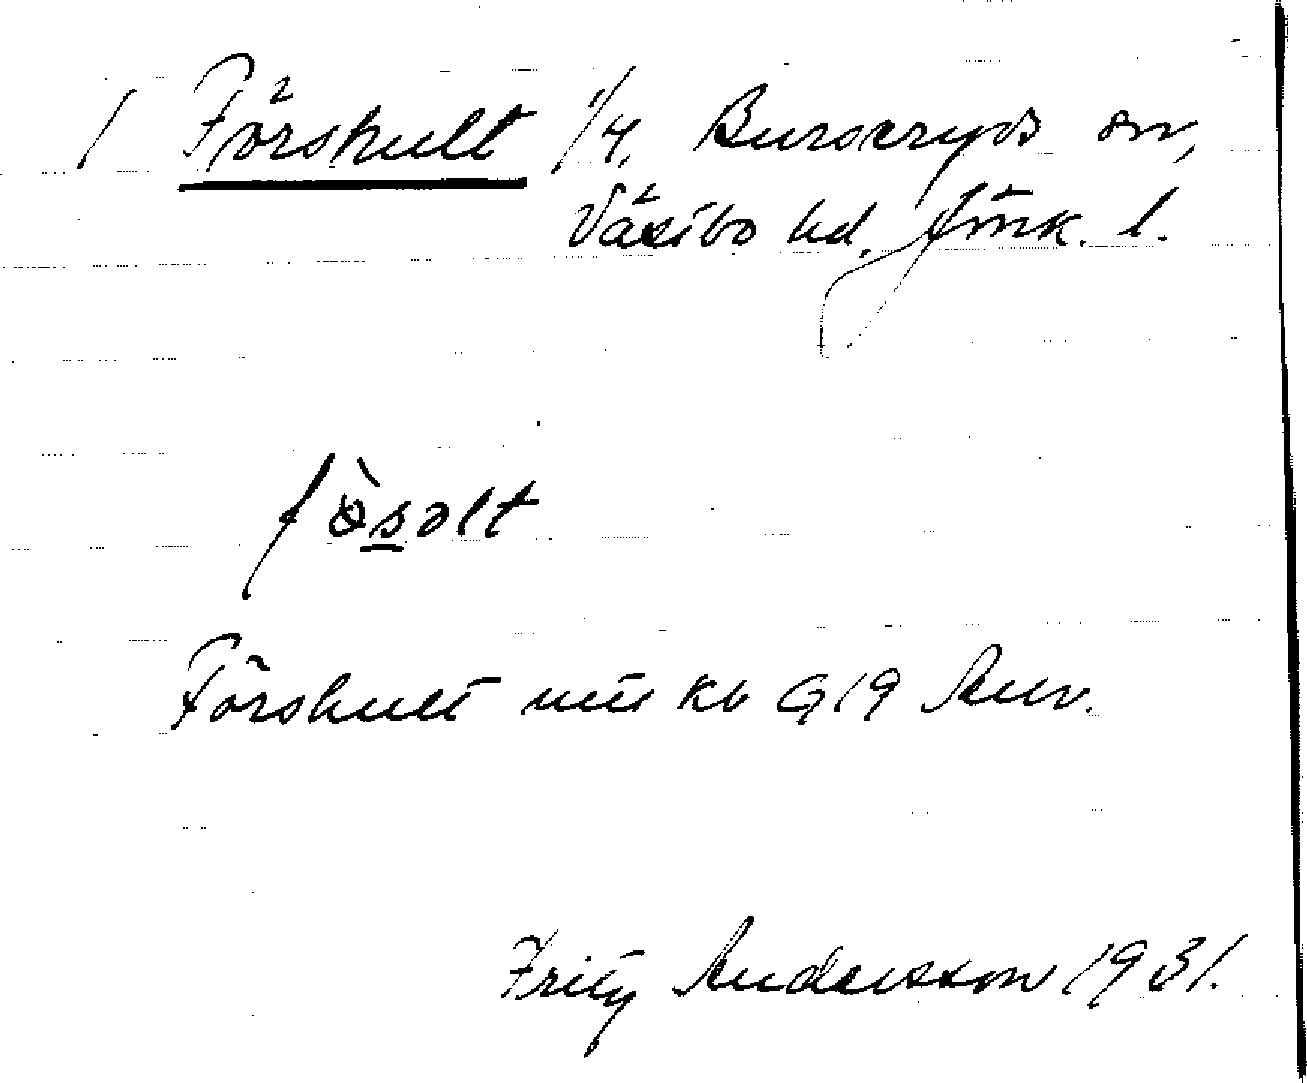 1 Förshult 1/4. Burseryds sn,
Västbo hd. Jönk. l.
fösəlt
Förshult
Fritz Andersson 1931.